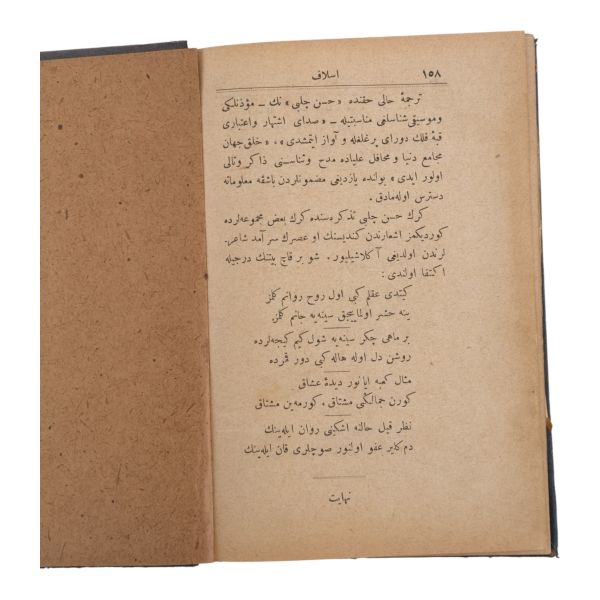 ١٥٨ اسلاف
ترجمهٔ حالی حقنده «حسن چلبی» نك ــ مؤذنلکی
وموسیقی شناسلغی مناسبتیله ــ «صدای اشتهار واعتباری
قبهٔ فلك دورای پرغلغله و آواز ایتمشدی» ، «خلق جهان
مجامع دنیا و محافل علیاده مدح وثناسنی ذاکر وتالی
اولور ایدی» یولنده یازدیغی مضمونلردن باشقه معلوماته
دسترس اوله‌مادق .
کرك حسن چلبی تذکره‌سنده کرك بعض مجموعه‌لرده
کوردیکمز اشعارندن کندیسنك او عصرك سرآمد شاعر ـ
لرندن اولدیغی آکلاشیلیور . شو بر قاچ بیتنك درجیله
اکتفا اولندی :
کیتدی عقلم کبی اول روح روانم کلمز
ینه حشر اولماییجق سینه‌یه جانم کلمز
بر ماهی چکر سینه‌یه شول کیم کیجه‌لرده
روشن دل اوله هاله کبی دور قمرده
مثال کعبه ایا نور دیدهٔ عشاق
کورن جمالکی مشتاق ، کورمه‌ین مشتاق
نظر قیل حالنه اشکنی روان ایله‌ینك
دم کلیر عفو اولنور صوچلری قان ایله‌ینك
نهایت